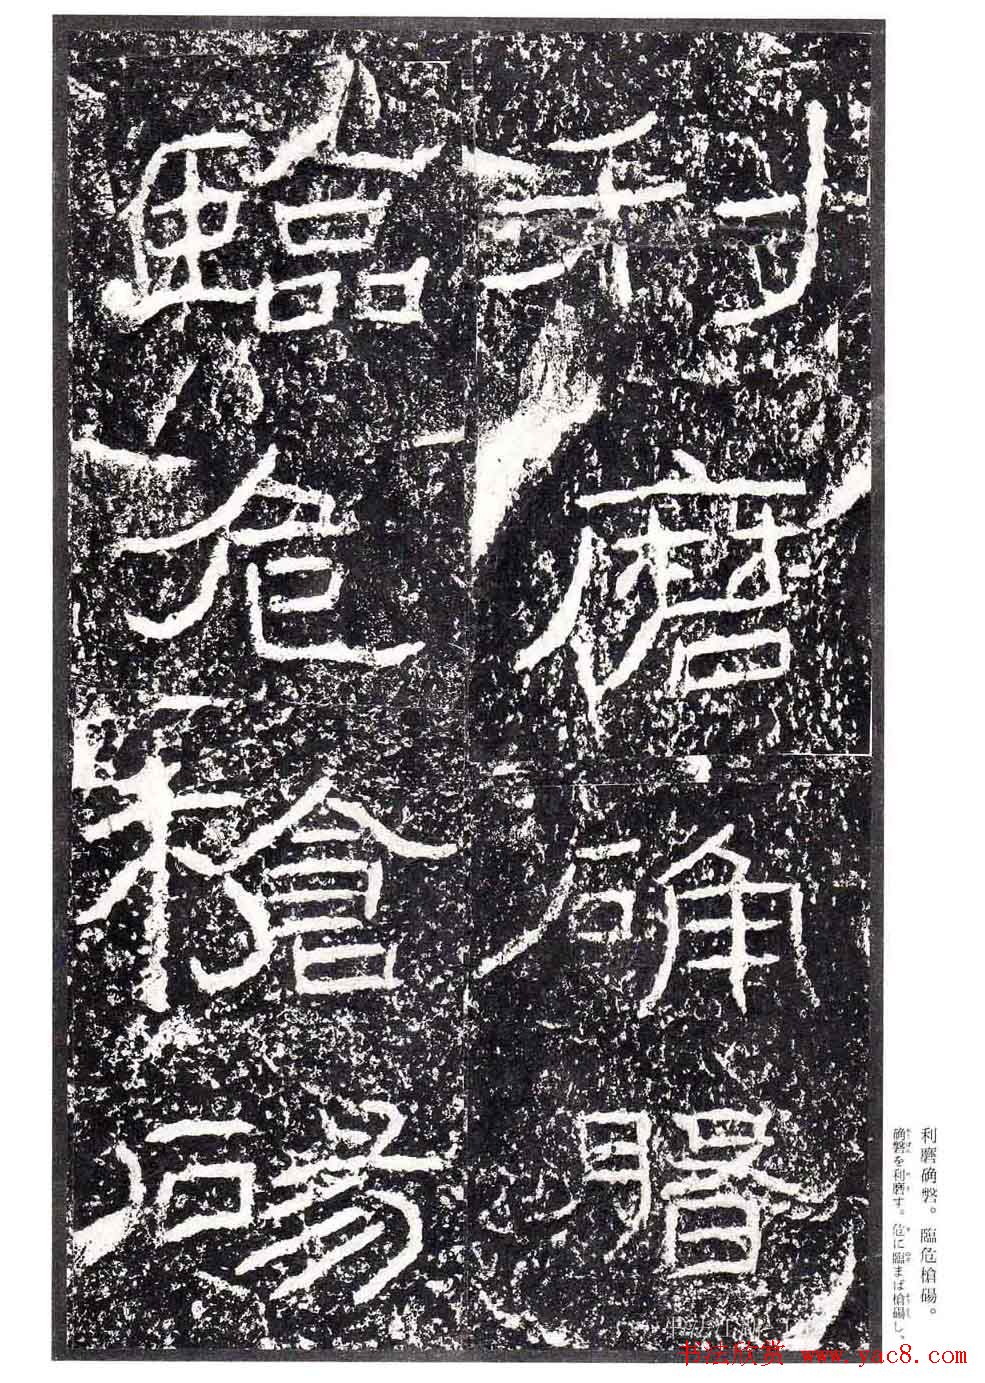 利磨确磐
臨危槍碭
利磨确磐。臨危槍碭。
确磐を利磨す。危に臨まば槍碭し、
书法欣赏 www.yac8.com